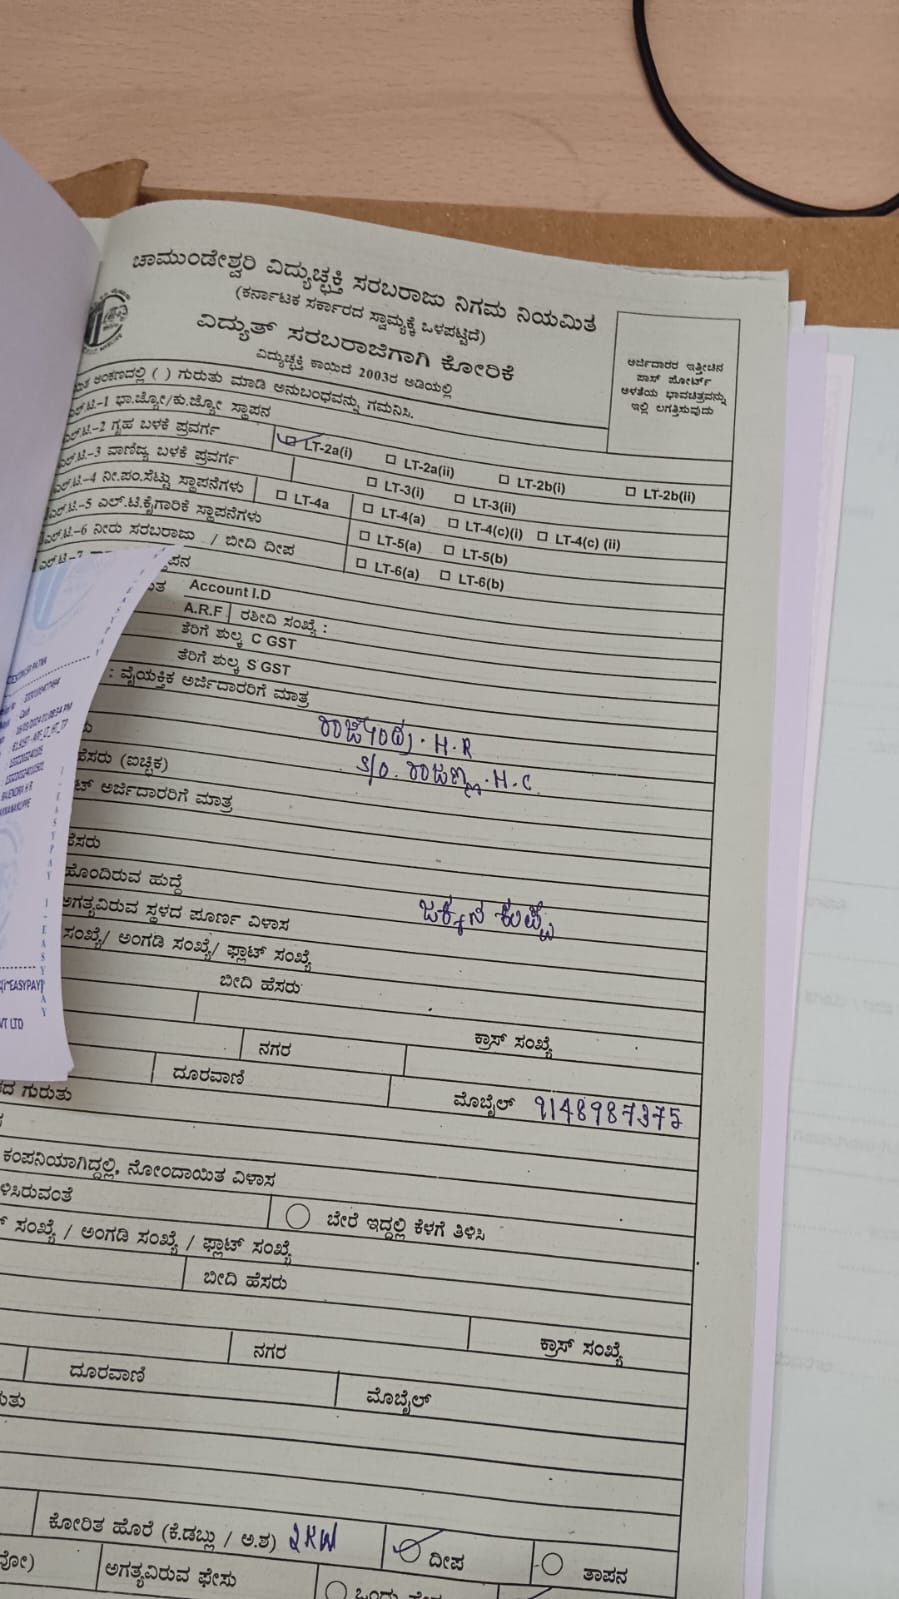 ಚಾಮುಂಡೇಶ್ವರಿ ವಿದ್ಯುಚ್ಛಕ್ತಿ ಸರಬರಾಜು ನಿಗಮ ನಿಯಮಿತ
(ಕರ್ನಾಟಕ ಸರ್ಕಾರದ ಸ್ವಾಮ್ಯಕ್ಕೆ ಒಳಪಟ್ಟಿದೆ)
ವಿದ್ಯುತ್ ಸರಬರಾಜಿಗಾಗಿ ಕೋರಿಕೆ
ವಿದ್ಯುಚ್ಛಕ್ತಿ ಕಾಯಿದೆ 2003ರ ಅಡಿಯಲ್ಲಿ
ಅರ್ಜಿದಾರರ ಇತ್ತೀಚಿನ
ಪಾಸ್ ಪೋರ್ಟ್
ಅಳತೆಯ ಭಾವಚಿತ್ರವನ್ನು
ಇಲ್ಲಿ ಲಗತ್ತಿಸುವುದು
ಅಂಕಣದಲ್ಲಿ ( ) ಗುರುತು ಮಾಡಿ ಅನುಬಂಧವನ್ನು ಗಮನಿಸಿ.
ಎಲ್.ಟಿ.-1 ಭಾ.ಜ್ಯೋ/ಕು.ಜ್ಯೋ ಸ್ಥಾಪನ
ಎಲ್.ಟಿ.-2 ಗೃಹ ಬಳಕೆ ಪ್ರವರ್ಗ LT-2a(i) LT-2a(ii) LT-2b(i) LT-2b(ii)
ಎಲ್.ಟಿ.-3 ವಾಣಿಜ್ಯ ಬಳಕೆ ಪ್ರವರ್ಗ LT-3(i) LT-3(ii)
ಎಲ್.ಟಿ.-4 ನೀ.ಪಂ.ಸೆಟ್ಟು ಸ್ಥಾಪನೆಗಳು LT-4a LT-4(a) LT-4(c)(i) LT-4(c) (ii)
ಎಲ್.ಟಿ.-5 ಎಲ್.ಟಿ.ಕೈಗಾರಿಕೆ ಸ್ಥಾಪನೆಗಳು LT-5(a) LT-5(b)
ಎಲ್.ಟಿ.-6 ನೀರು ಸರಬರಾಜು / ಬೀದಿ ದೀಪ LT-6(a) LT-6(b)
ಎಲ್.ಟಿ.-7
Account I.D
A.R.F ರಶೀದಿ ಸಂಖ್ಯೆ :
ತೆರಿಗೆ ಶುಲ್ಕ C GST
ತೆರಿಗೆ ಶುಲ್ಕ S GST
: ವೈಯಕ್ತಿಕ ಅರ್ಜಿದಾರರಿಗೆ ಮಾತ್ರ
ರಾಜೇಂದ್ರ. H.R
ಹೆಸರು (ಐಚ್ಛಿಕ) S/O. ರಾಜಣ್ಣ. H.C
ಅರ್ಜಿದಾರರಿಗೆ ಮಾತ್ರ
ಹೆಸರು
ಹೊಂದಿರುವ ಹುದ್ದೆ
ಅಗತ್ಯವಿರುವ ಸ್ಥಳದ ಪೂರ್ಣ ವಿಳಾಸ ಜಕ್ಕನ ಕುಪ್ಪೆ
ಸಂಖ್ಯೆ/ ಅಂಗಡಿ ಸಂಖ್ಯೆ/ ಫ್ಲಾಟ್ ಸಂಖ್ಯೆ
ಬೀದಿ ಹೆಸರು
ಕ್ರಾಸ್ ಸಂಖ್ಯೆ
ನಗರ
ದೂರವಾಣಿ ಮೊಬೈಲ್ 9148987375
ಗುರುತು
ಕಂಪನಿಯಾಗಿದ್ದಲ್ಲಿ, ನೋಂದಾಯಿತ ವಿಳಾಸ
ಬೇರೆ ಇದ್ದಲ್ಲಿ ಕೆಳಗೆ ತಿಳಿಸಿ
ಸಂಖ್ಯೆ / ಅಂಗಡಿ ಸಂಖ್ಯೆ / ಫ್ಲಾಟ್ ಸಂಖ್ಯೆ
ಬೀದಿ ಹೆಸರು
ನಗರ ಕ್ರಾಸ್ ಸಂಖ್ಯೆ
ದೂರವಾಣಿ ಮೊಬೈಲ್
ಕೋರಿತ ಹೊರೆ (ಕೆ.ಡಬ್ಲು / ಅ.ಶ) 2KW ದೀಪ ತಾಪನ
ಅಗತ್ಯವಿರುವ ಫೇಸು